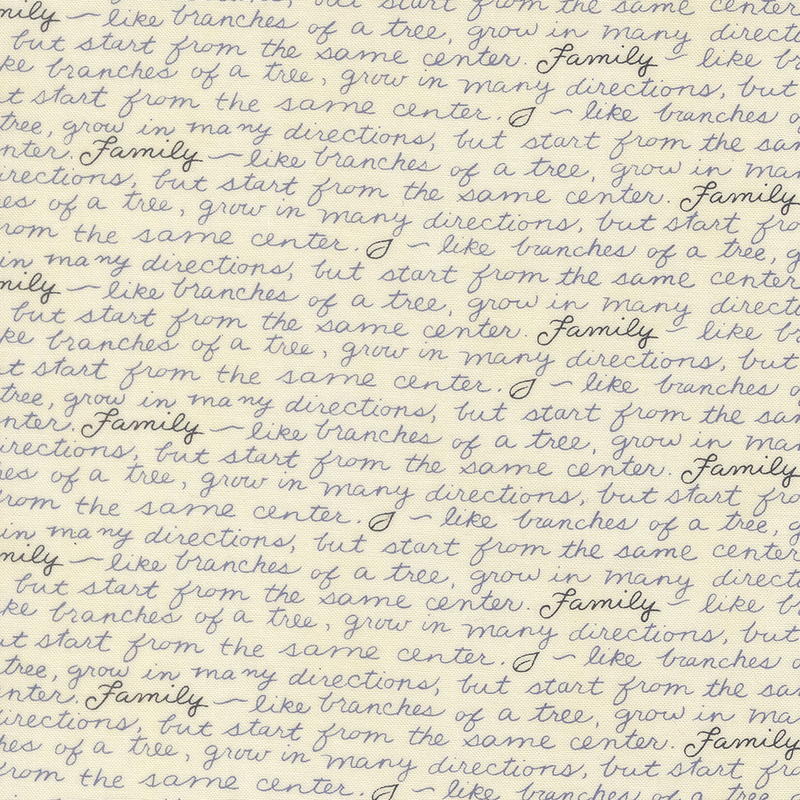 but start from the same center
mily ~ like branches of a tree, grow in many directi
but start from the same center. Family ~ like br
ke branches of a tree, grow in many directions, but
t start from the same center. ~ like branches o
tree, grow in many directions, but start from the sam
nter. Family ~ like branches of a tree, grow in man
irections, but start from the same center. Family
es of a tree, grow in many directions, but start fro
rom the same center. ~ like branches of a tree, g
in many directions, but start from the same center
mily ~ like branches of a tree, grow in many directi
but start from the same center. Family ~ like br
ke branches of a tree, grow in many directions, but
t start from the same center. ~ like branches o
tree, grow in many directions, but start from the sam
nter. Family ~ like branches of a tree, grow in man
irections, but start from the same center. Family
hes of a tree, grow in many directions, but start fro
rom the same center. ~ like branches of a tree, g
in many directions, but start from the same center
mily ~ like branches of a tree, grow in many directi
but start from the same center. Family ~ like br
ke branches of a tree, grow in many directions, but
ut start from the same center. ~ like branches o
tree, grow in many directions, but start from the sa
nter. Family ~ like branches of a tree, grow in ma
directions, but start from the same center. Family
hes of a tree, grow in many directions, but start fro
from the same center. ~ like branches of a tree, g